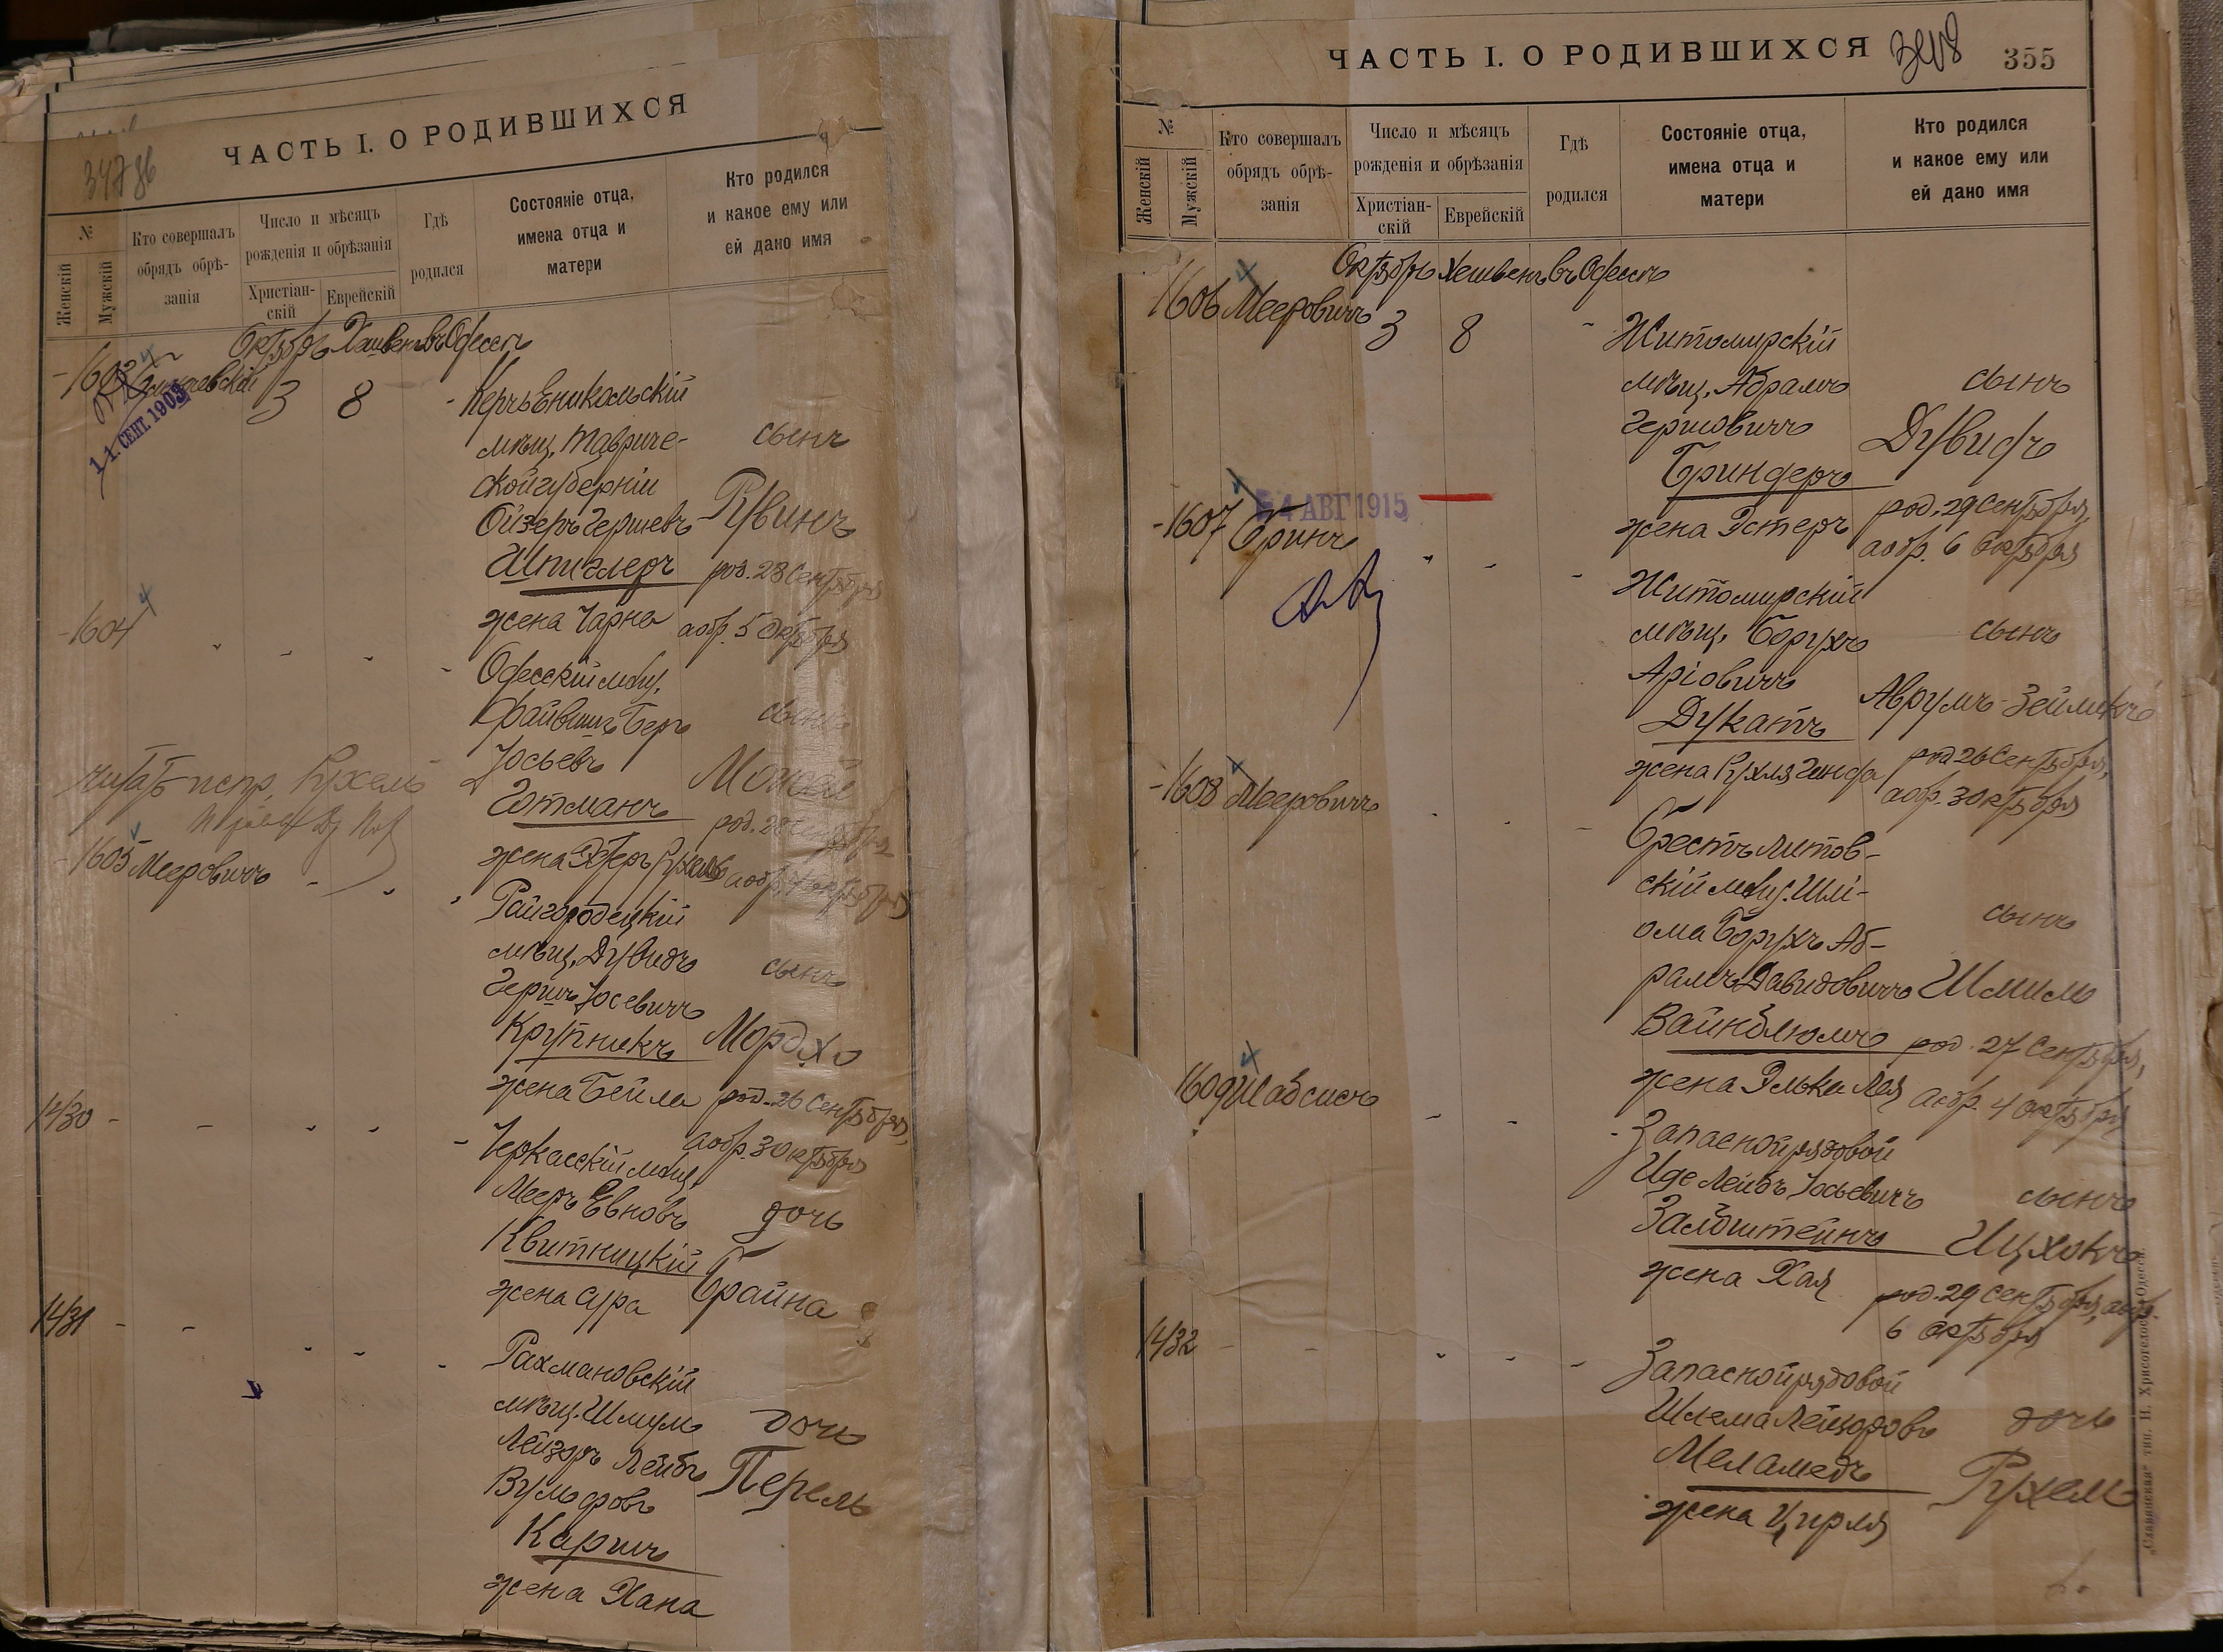 ЧАСТЬ I. О РОДИВШИХСЯ
№
Женскій
Мужскій
Кто совершалъ
обрядъ обрѣ-
занія
Число и мѣсяцъ
рожденія и обрѣзанія
Христіан-
скій
Еврейскій
Гдѣ
родился
Состояніе отца,
имена отца и
матери
Кто родился
и какое ему или
ей дано имя
Октябрь Хешвенъ въ Одессѣ
1603
3 8
11. СЕНТ. 1903
Керчь Еникольскій
мѣщ. Тавриче-
ской губерніи
Ойзеръ Гершевъ
Шпиглеръ
жена Чарна
сынъ
Рувинъ
род. 28 Сентября
а обр. 5 Октября
1604
Одесскій мѣщ.
Файвишъ Беръ
Іосьевъ
Готманъ
жена Эстеръ Рухель
сынъ
Мошей
род. 28 Сентября
а обр. Октября
читать испр. Рухель
1605 Мееровичъ
Райгородецкій
мѣщ. Дувидъ
Гершъ Іосевичъ
Крупникъ
жена Бейла
сынъ
Мордхо
род. 26 Сентября,
а обр. 3 Октября
1430
Черкасскій мѣщ.
Мееръ Евновъ
Квитницкій
жена Сура
дочь
Брайна
1431
Рахмановскій
мѣщ. Шмуль
Лейзоръ Лейбъ
Вульфовъ
Каришъ
жена Хана
дочь
Перель
ЧАСТЬ I. О РОДИВШИХСЯ
355
№
Женскій
Мужскій
Кто совершалъ
обрядъ обрѣ-
занія
Число и мѣсяцъ
рожденія и обрѣзанія
Христіан-
скій
Еврейскій
Гдѣ
родился
Состояніе отца,
имена отца и
матери
Кто родился
и какое ему или
ей дано имя
Октябрь Хешвенъ въ Одессѣ
1606 Мееровичъ 3 8
Житомирскій
мѣщ. Абрамъ
Гершовичъ
Бриндеръ
жена Эстеръ
сынъ
Дувидъ
род. 29 Сентября,
а обр. 6 Октября
4 АВГ 1915
1607 Гринъ
Житомирскій
мѣщ. Борухъ
Аріовичъ
Дукатъ
жена Рухля Гинда
сынъ
Аврумъ-Зейликъ
род 26 Сентября,
а обр. 3 Октября
1608 Мееровичъ
Брестъ Литов-
скій мѣщ. Шлі-
ома Борухъ Аб-
рамъ Давидовичъ
Вайнблюмъ
жена Элька Лея
сынъ
Шмиль
род. 27 Сентября,
а обр. 4 Октября
1609 Шабсисъ
Запасной рядовой
Иде Лейбъ Іосьевичъ
Залбштейнъ
жена Хая
сынъ
Ицхокъ
род. 29 Сентября, а обр.
6 Октября
1432
Запасной рядовой
Шлема Лейзоровъ
Меламедъ
жена Цирля
дочь
Рухель
„Славянская“ тип. Н. Хрисогелосъ, Одесса.